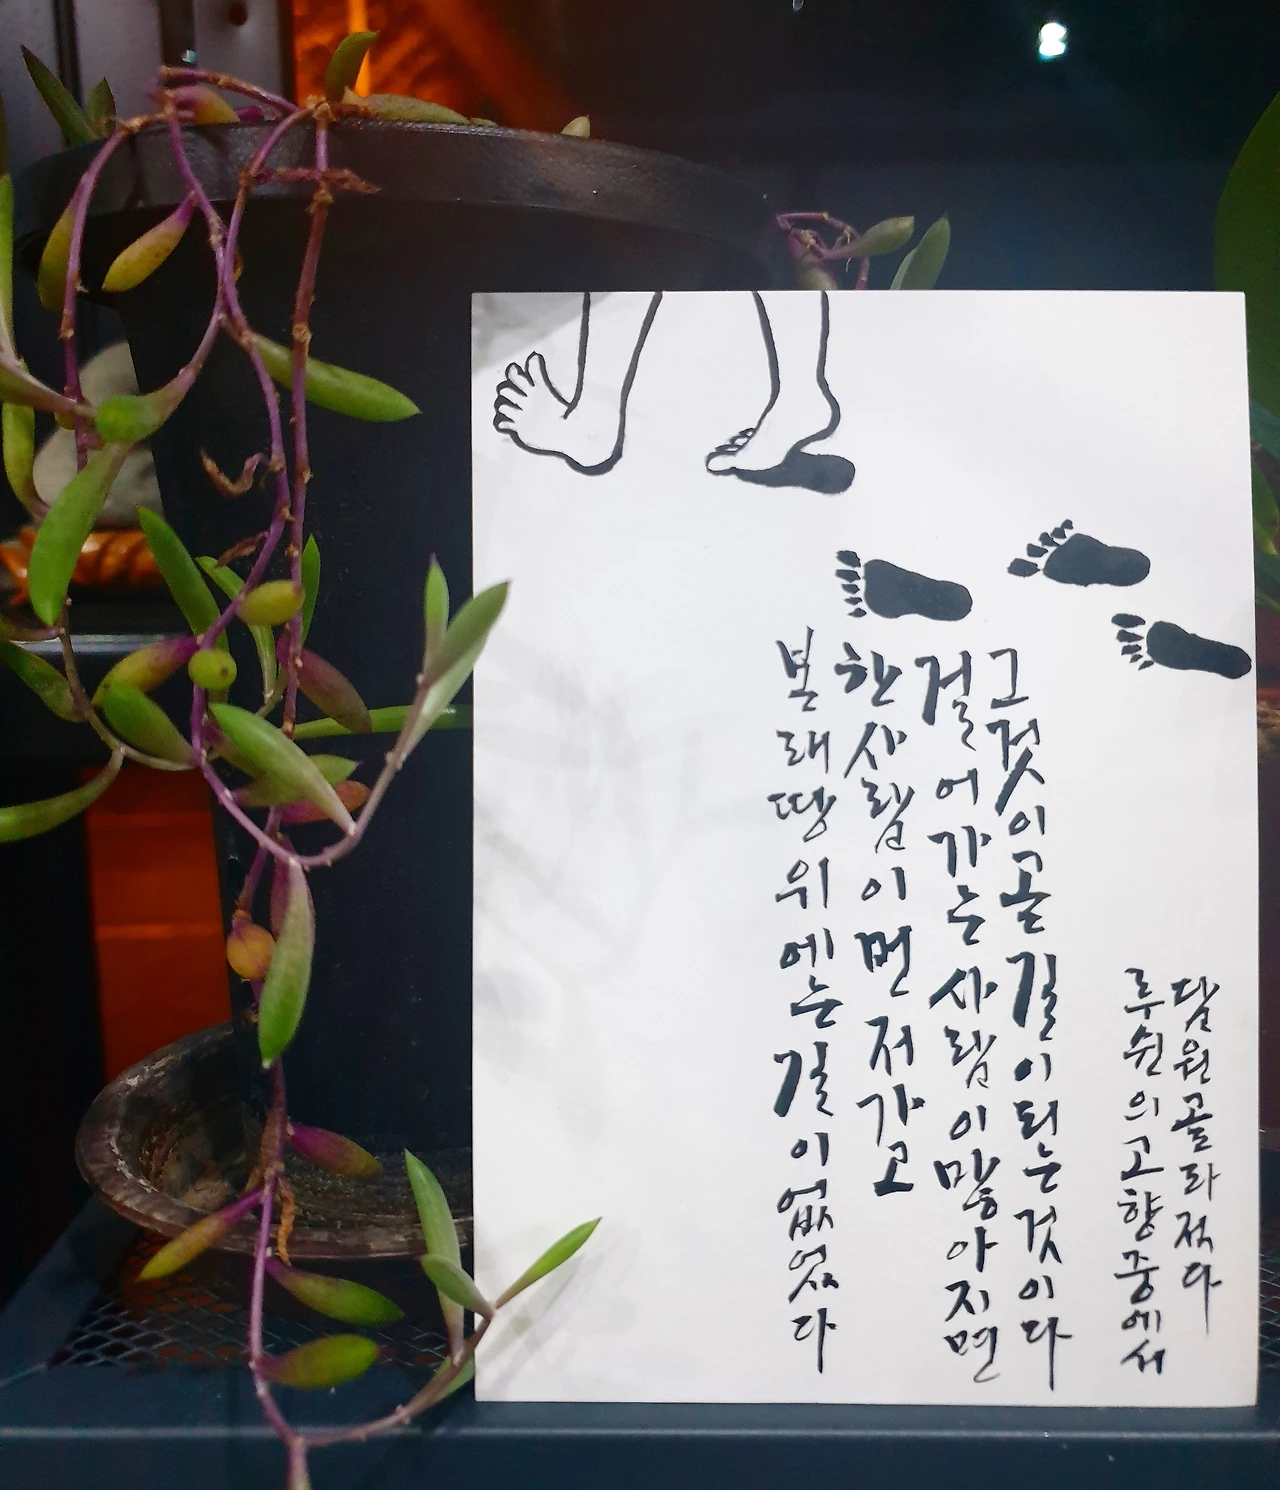 본래땅위에는길이없었다
한사람이먼저가고
걸어가는사람이많아지면
그것이곧길이되는것이다
루쉰의고향중에서
담원골라적다